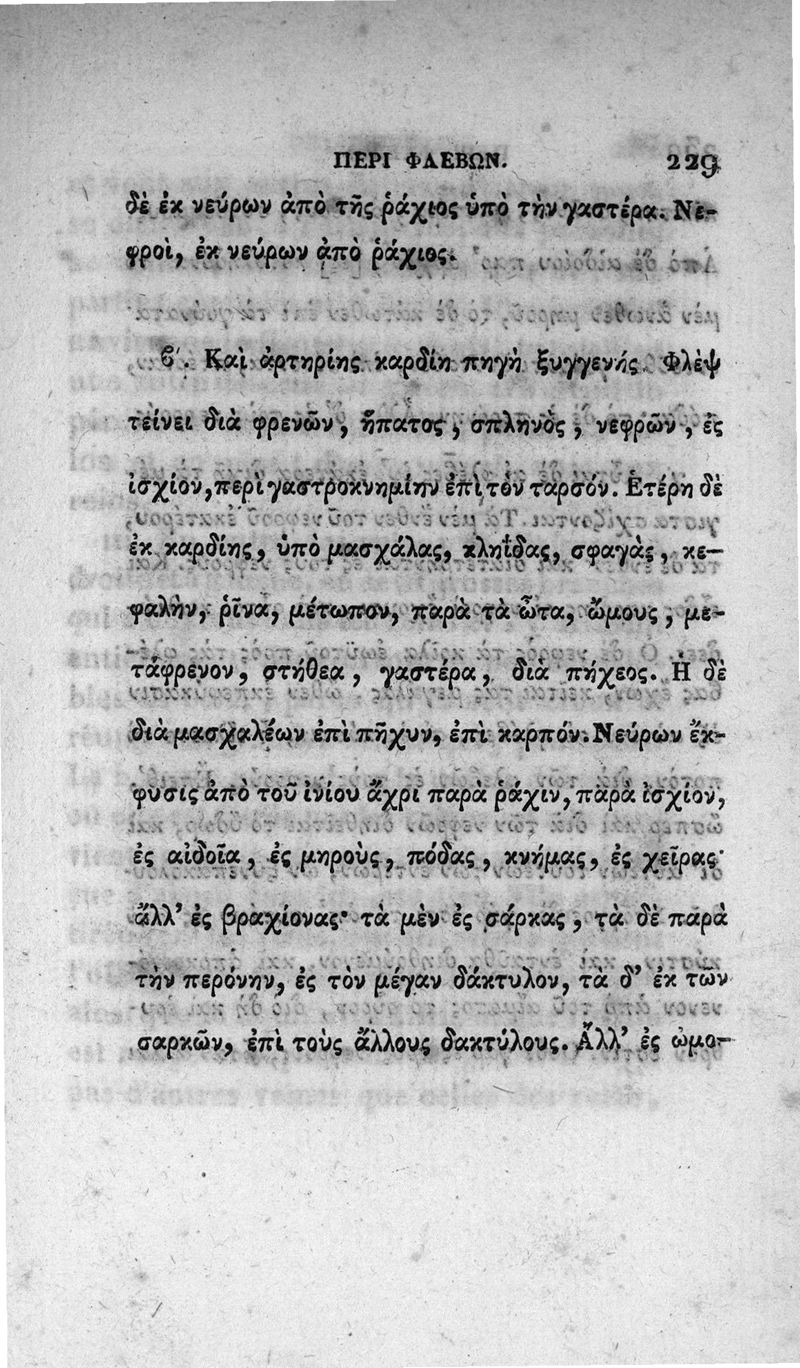 ΠΕΡΙ ΦΛΕΒΩΝ. 229
δὲ ἐκ νεύρων ἀπὸ τῆς ῥάχιος ὑπὸ τὴν γαστέρα. Νε-
φροὶ, ἐκ νεύρων ἀπὸ ῥάχιος.
ϐ′. Καὶ ἀρτηρίης καρδίη πηγὴ ξυγγενής. Φλὲψ
τείνει διὰ φρενῶν, ἥπατος, σπληνὸς, νεφρῶν, ἐς
ἰσχίον, περὶ γαστροκνημίην ἐπὶ τὸν ταρσόν. Ἑτέρη δὲ
ἐκ καρδίης, ὑπὸ μασχάλας, κληΐδας, σφαγὰς, κε-
φαλὴν, ῥῖνα, μέτωπον, παρὰ τὰ ὦτα, ὤμους, με-
τάφρενον, στήθεα, γαστέρα, διὰ πήχεος. Ἡ δὲ
διὰ μασχαλέων ἐπὶ πῆχυν, ἐπὶ καρπόν. Νεύρων ἔκ-
φυσις ἀπὸ τοῦ ἰνίου ἄχρι παρὰ ῥάχιν, παρὰ ἰσχίον,
ἐς αἰδοῖα, ἐς μηροὺς, πόδας, κνήμας, ἐς χεῖρας·
ἄλλ’ ἐς βραχίονας· τὰ μὲν ἐς σάρκας, τὰ δὲ παρὰ
τὴν περόνην, ἐς τὸν μέγαν δάκτυλον, τὰ δ’ ἐκ τῶν
σαρκῶν, ἐπὶ τοὺς ἄλλους δακτύλους. Ἄλλ’ ἐς ὠμο-